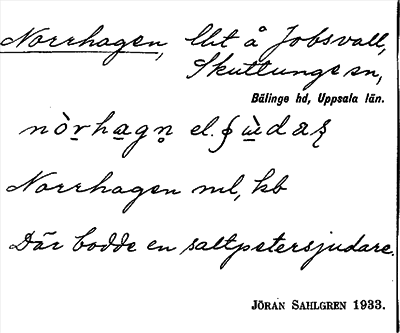 Norrhagen, lht å Jobsvall,
Skuttunge sn,
Bälinge hd, Uppsala län.
nòrhagn̥ el.
Norrhagen ml, kb
Där bodde en saltpetersjudare.
JÖRAN SAHLGREN 1933.